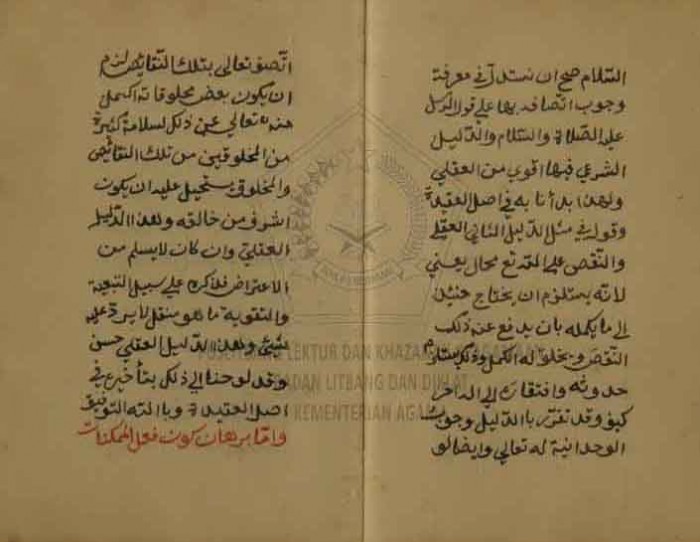 السلام صح ان نستدل في معرفة
وجوب اتصافه بها على قول الرسل
عليه الصلاة والسلام والدليل
الشرعي فيها اقوي من العقلي
ولهذا بدأنا به في اصل العقيدة
وقوله في مثل الدليل الثاني العقلي
والنقص علي تع محال يعني
لانه يستلزم ان يحتاج حنيئذ
الي ما يكمله بان يدفع عنه ذلك
النقص ويخلق له الكمل وذلك يستلزم
حدوثه وافتقاره الي
كيف وقد تقرر باالدليل وجوب
الوحدانية له تعالي وايضا لو
اتصف تعالي بتلك النقائص لزم
ان يكون بعض مخلوقاته اكمل
منه تعالي عن ذلك لسلامة كثيرة
من المخلوقين من تلك النقائص
والمخلوق يستحيل عليه ان يكون
اشرف من خالقه وهذا الدليل
العقلي وان كان لا يسلم من
الاعتراض فلاكره علي سبيل التبعية
والتقوية ما هو مستقل لا يرد عليه
شيئ وهذا الدليل العقلي حسن
وقد لوحنا الي ذلك بتأخيره في
اصل العقيدة وباالله التوفيق
واما برهان كون فعل الممكنات
LEKTUR DAN KHAZANAH
BADAN LITBANG DAN DIKLAT
KEMENTERIAN AGAMA